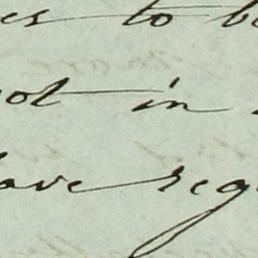 es to b
not in
have reg